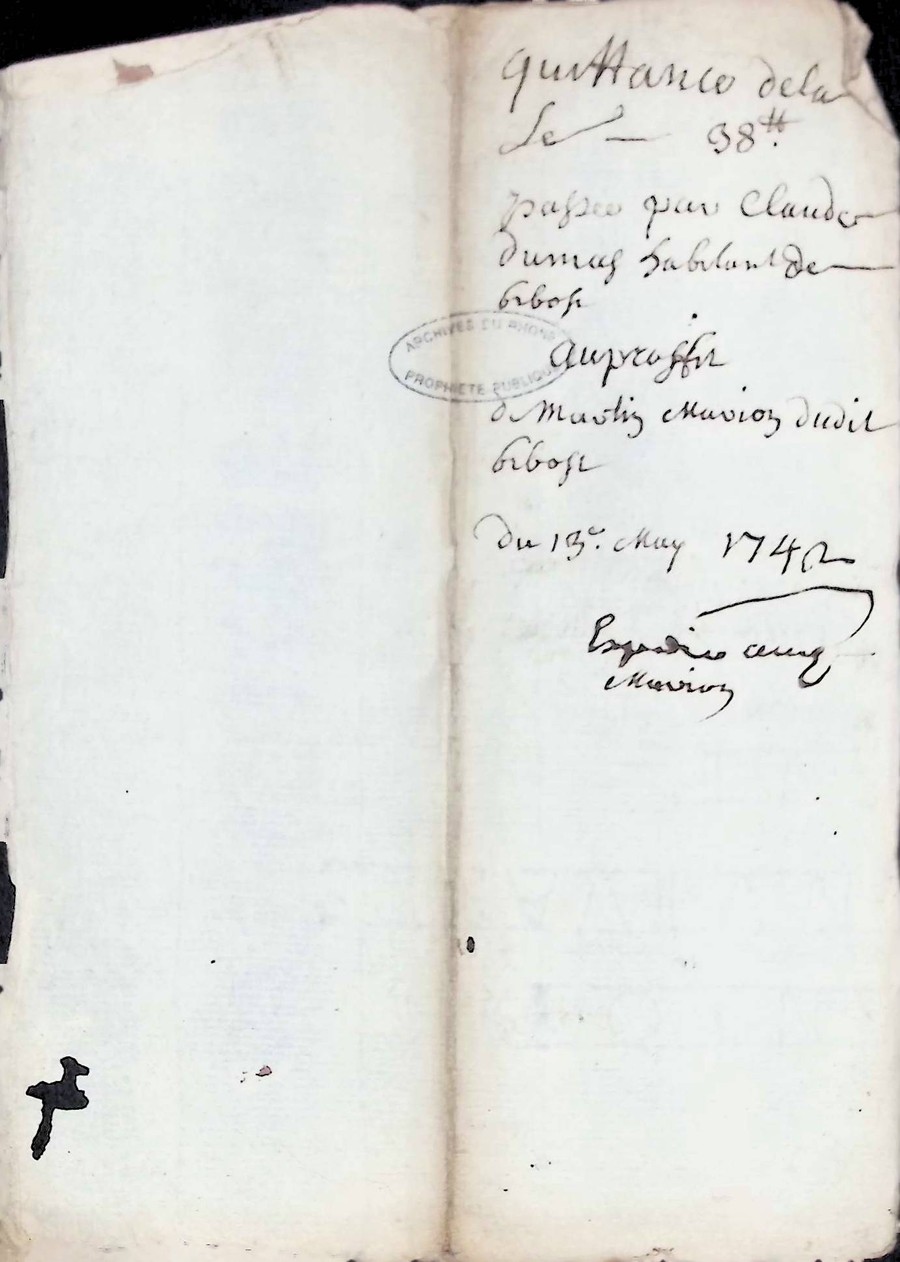 quittance dela
So͞e — 38tt.
passee par Claude
dumas habitant de
bibost
auproffit
de Martin Marion dudit
bibost
Du 13e. May 1742
Expediée aud
Marion
ARCHIVES DU RHONE
PROPRIETE PUBLIQUE